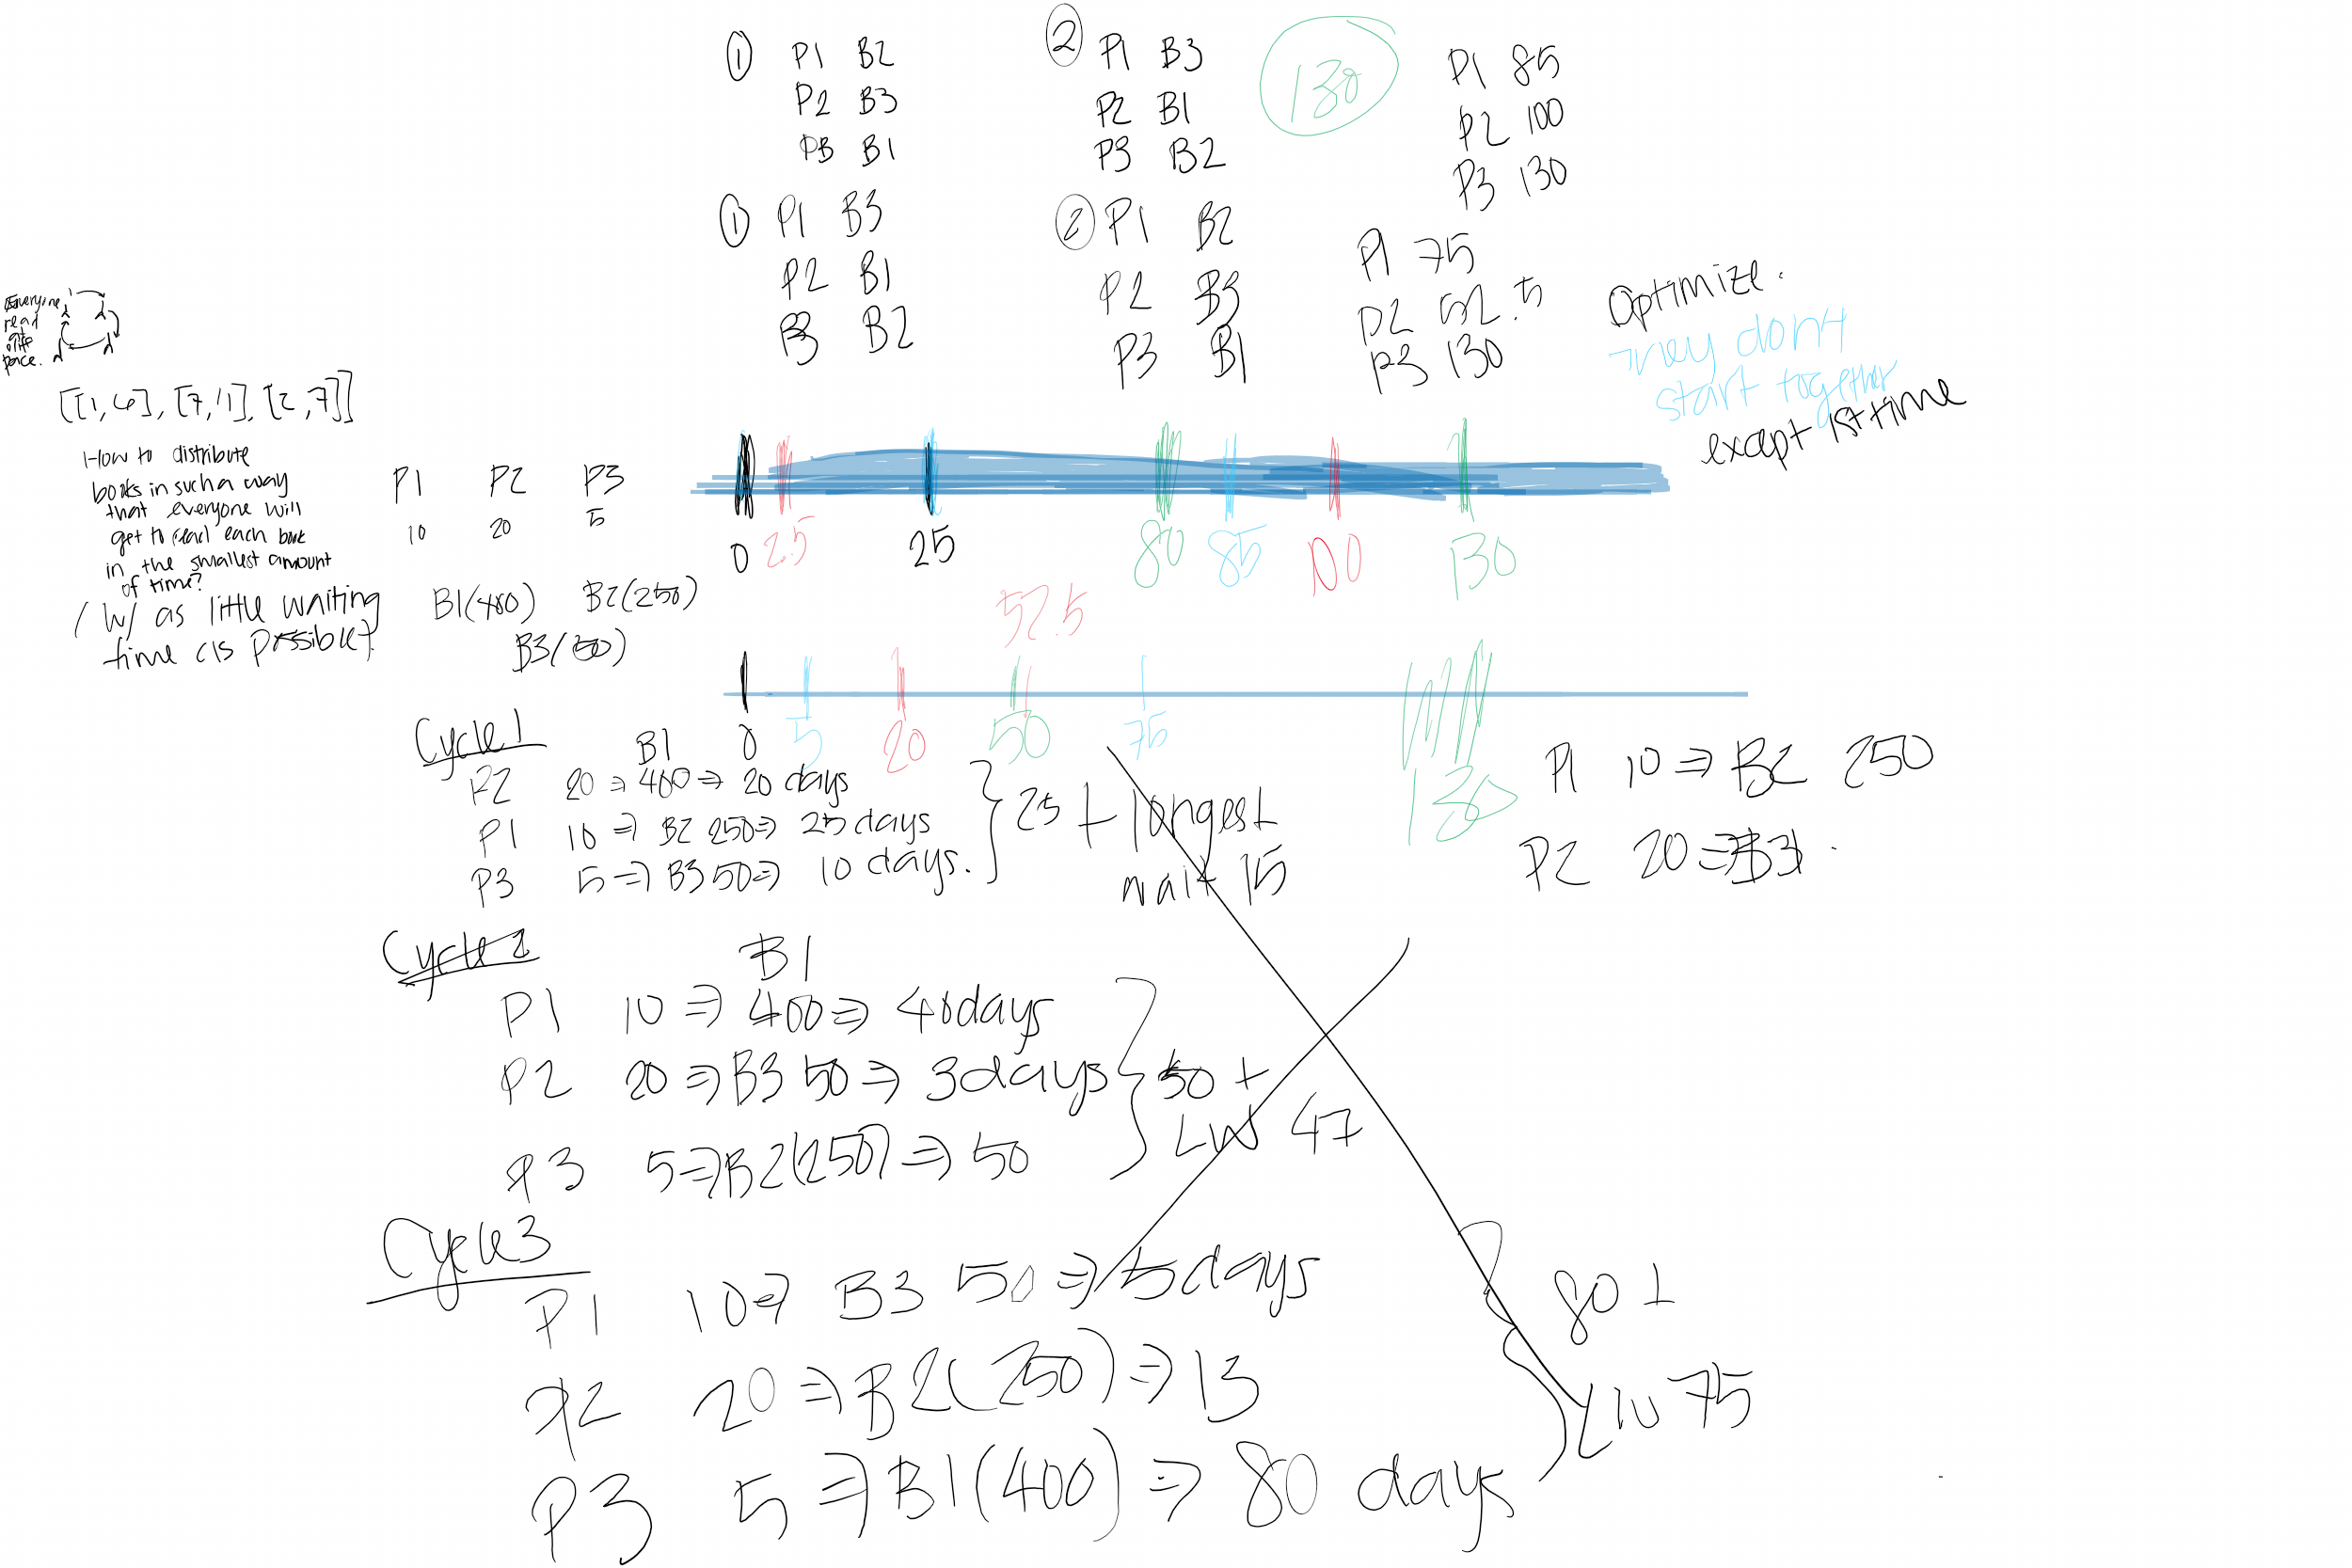 ① P1 B2
P2 B3
P3 B1
② P1 B3
P2 B1
P3 B2
130
P1 85
P2 100
P3 130
① P1 B3
P2 B1
P3 B2
② P1 B2
P2 B3
P3 B1
P1 75
P2 52.5
P3 130
Optimize.
They don't
start together
except 1st time
Everyone
read
at
diff
pace.
[[1,6], [7,1], [2,7]]
How to distribute
books in such a way
that everyone will
get to read each book
in the smallest amount
of time?
(w/ as little waiting
time as possible)
P1 P2 P3
10 20 5
B1(400) B2(250)
B3(50)
0 2.5 25 80 85 100 130
52.5
0 5 20 50 75 130
Cycle 1
B1
P2 20 ⇒ 400 ⇒ 20 days
P1 10 ⇒ B2 250 ⇒ 25 days
P3 5 ⇒ B3 50 ⇒ 10 days.
25 + longest
wait 15
P1 10 ⇒ B2 250
P2 20 ⇒
Cycle 2
B1
P1 10 ⇒ 400 ⇒ 40 days
P2 20 ⇒ B3 50 ⇒ 3 days
P3 5 ⇒ B2(250) ⇒ 50
50 +
LW 47
Cycle 3
P1 10 ⇒ B3 50 ⇒ 5 days
P2 20 ⇒ B2(250) ⇒ 13
P3 5 ⇒ B1(400) ⇒ 80 days
80 +
LW 75